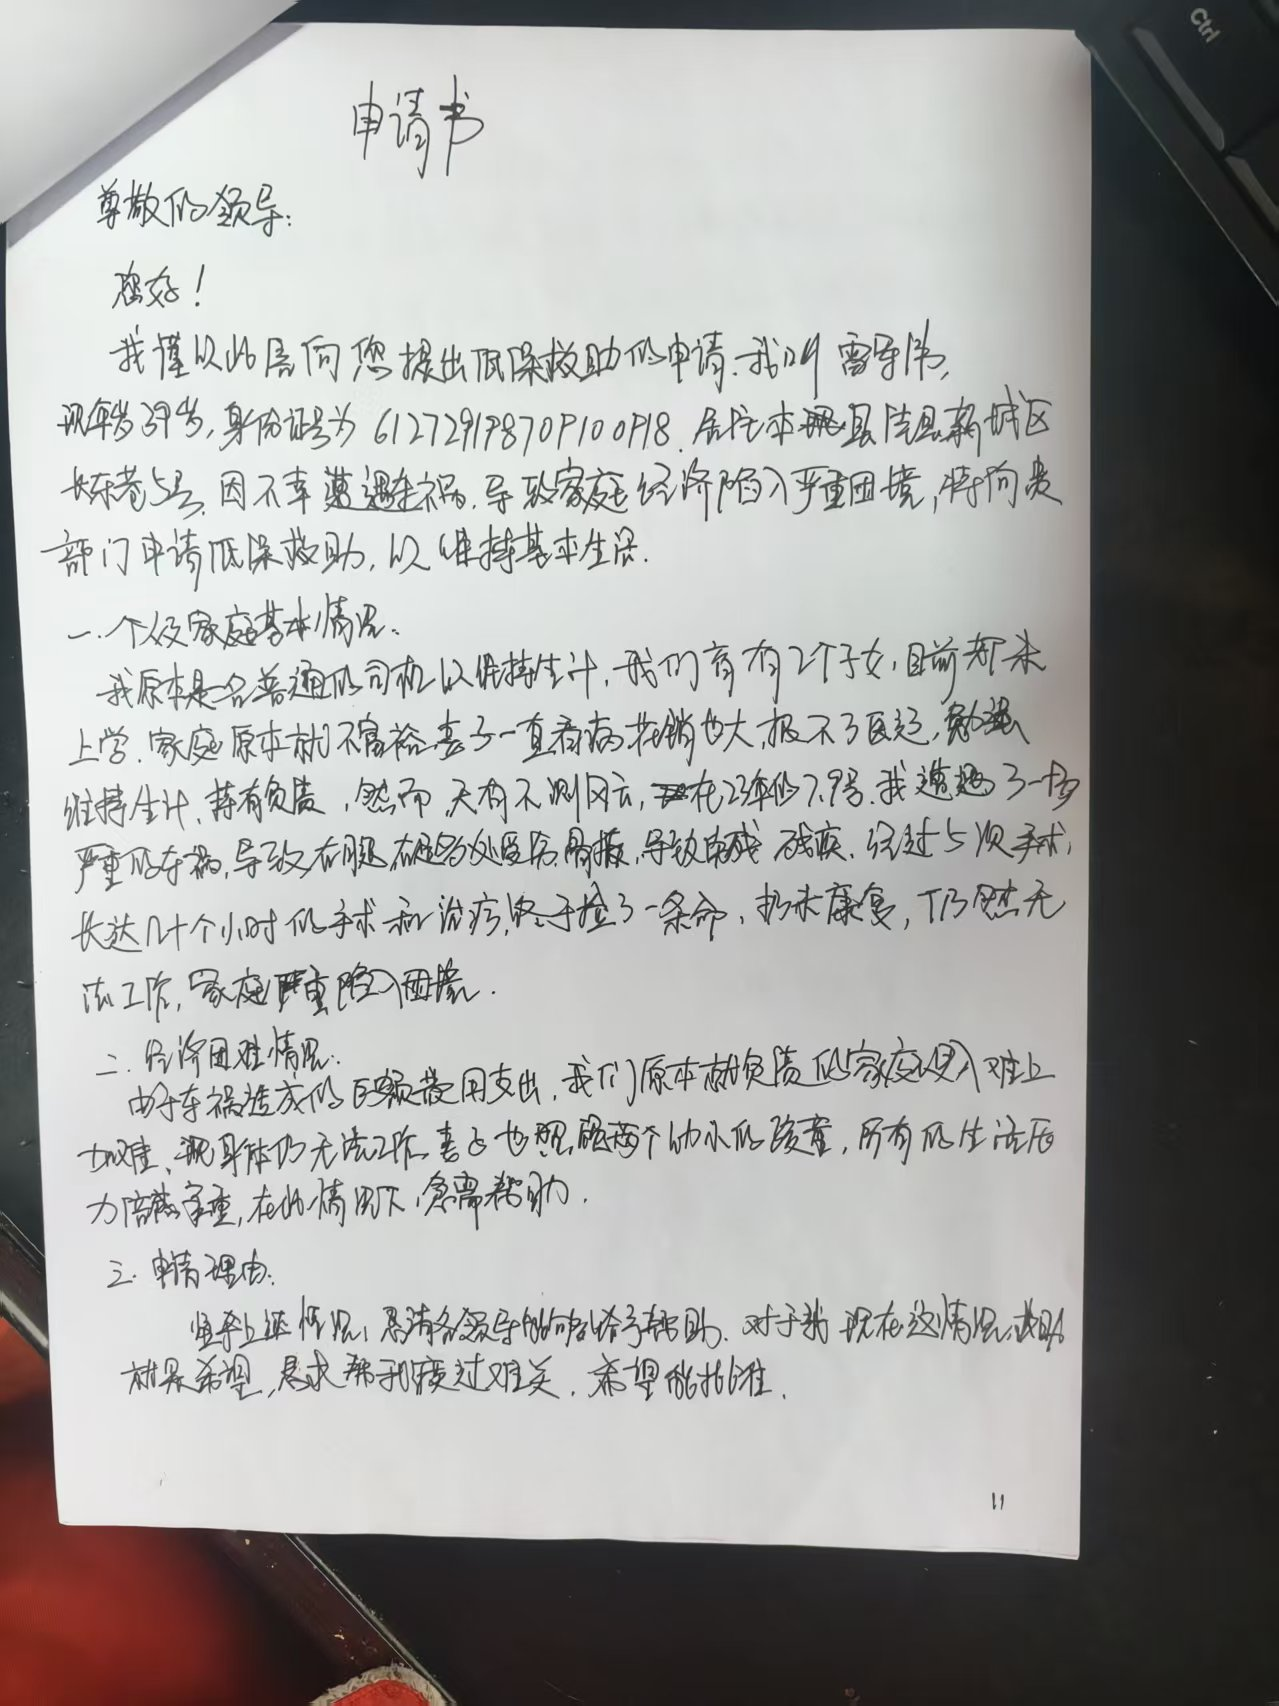 申请书
尊敬的领导:
您好!
我谨以此信向您提出低保救助的申请.我叫雷
现年岁39岁,身份证号为 居住本县县新城区
长东巷5号.因不幸遭遇车祸.导致家庭经济陷入严重困境,特向贵
部门申请低保救助,以维持基本生活.
一.个人及家庭基本情况.
我原本是一名普通的司机以维持生计,我们育有2个子女,目前都未
上学.家庭原本就不富裕.妻子一直看病花销也大,报不了医超,勉强
维持生计,持有负债,然而,天有不测风云,在23年的7.9号.我遭遇了一场
严重的车祸,导致右腿右多处受伤.骨折,导致残疾.经过5次手术,
长达几十个小时的手术和治疗,终于捡了一条命,扔未康复,仍然无
法工作,家庭严重陷入困境.
二.经济困难情况:
由于车祸造成的巨额费用支出,我们原本就负债的家庭没入难上
加难、现身体仍无法工作.妻子也照顾两个幼小的孩童,所有的生活压
力陪感严重,在此情况下,急需帮助.
三.申请理由:
鉴于上述情况,恳请各领导能够给予帮助.对于我现在这情况,救助
就是希望,恳求帮我度过难关.希望能批准.
11